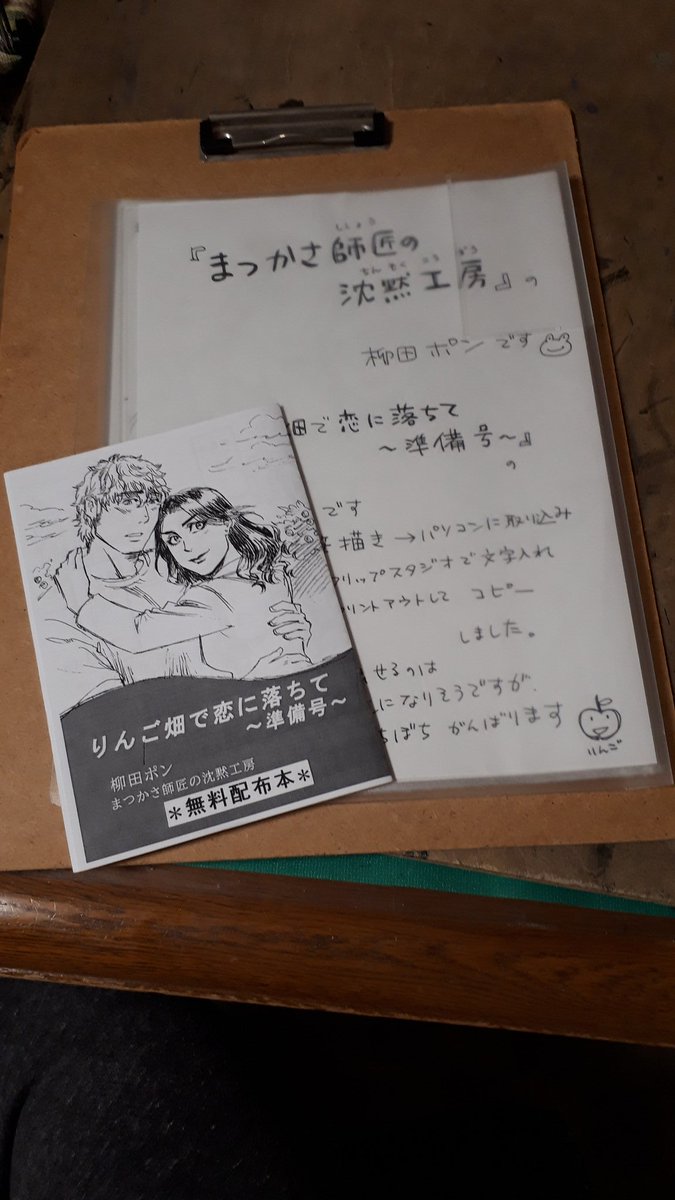 『まつかさ師匠の
ししょう
沈黙工房』の
ちんもくこうぼう
柳田ポンです
畑で恋に落ちて
～準備号～』
の
です
描き→パソコンに取り込み
リップスタジオで文字入れ
リントアウトして コピー
しました。
せるのは
になりそうですが、
ぼち がんばります
りんご
りんご畑で恋に落ちて
～準備号～
柳田ポン
まつかさ師匠の沈黙工房
＊無料配布本＊